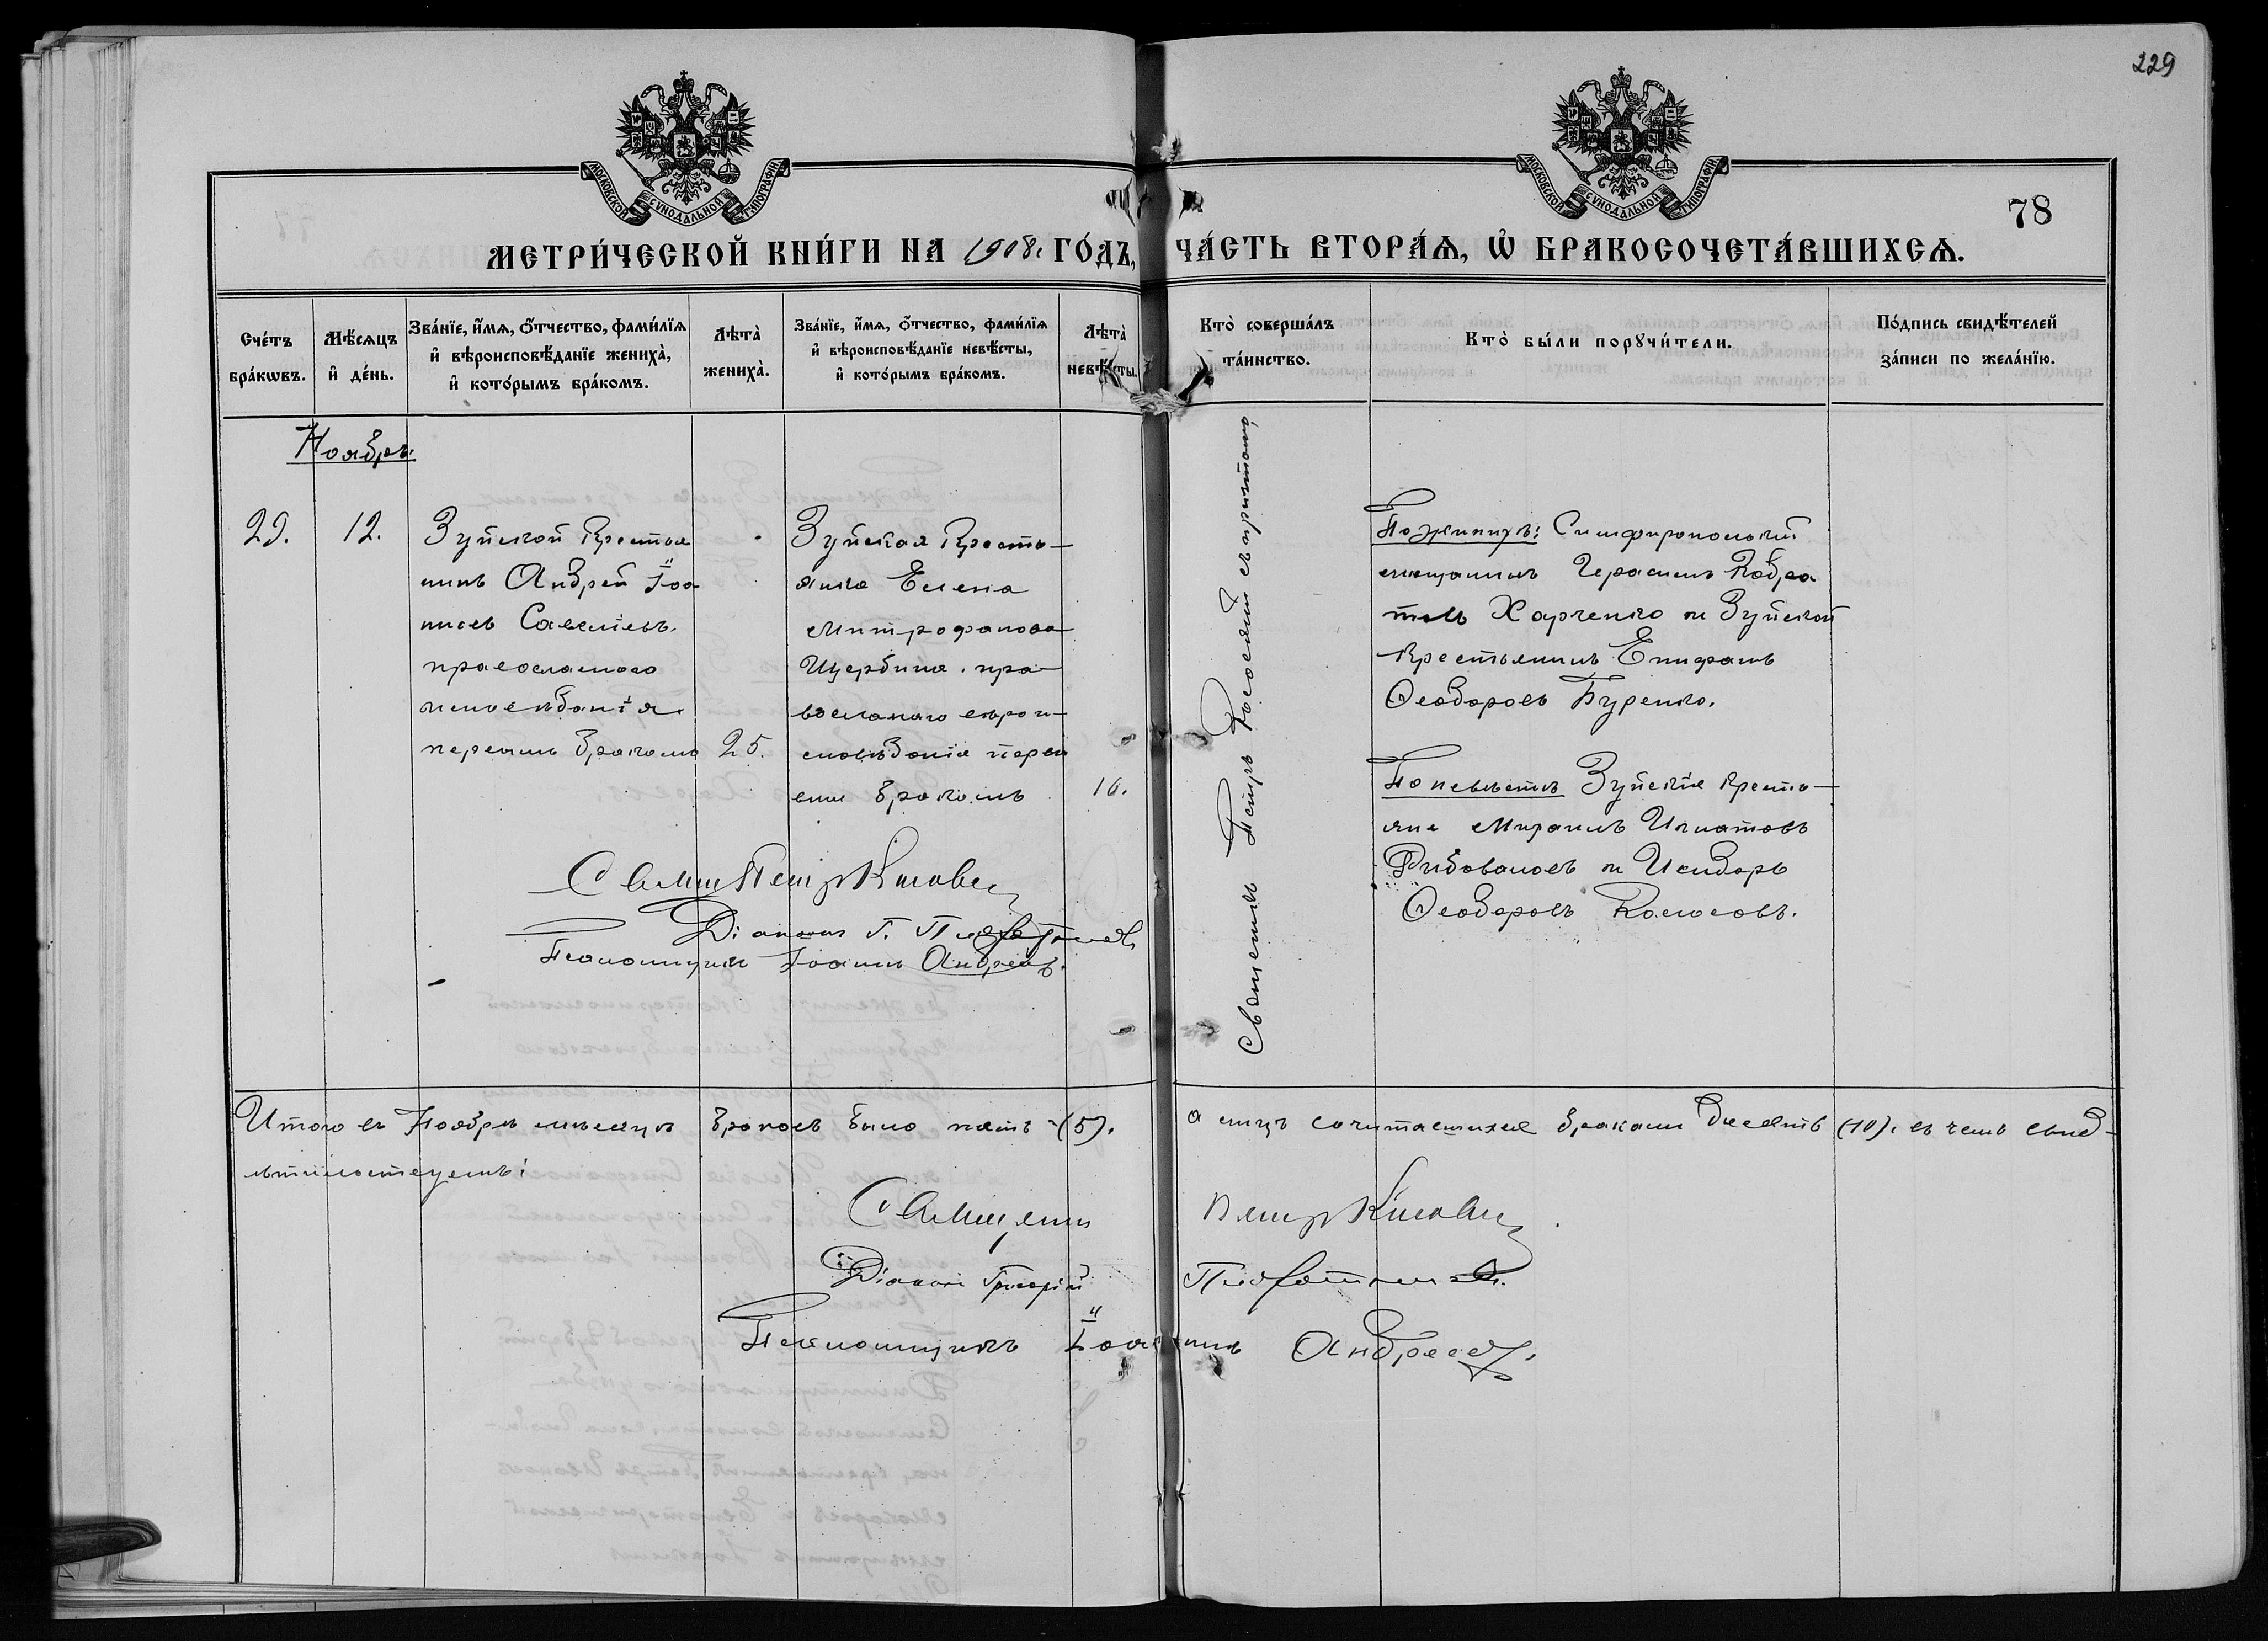 229
78
МОСКОВСКОЙ СѴНОДАЛЬНОЙ ТИПОГРАФІИ
МОСКОВСКОЙ СѴНОДАЛЬНОЙ ТИПОГРАФІИ
МЕТРИ́ЧЕСКОЙ КНИ́ГИ НА 1908. ГО́ДЪ, ЧА́СТЬ ВТОРА́Ѧ, Ѡ҆ БРАКОСОЧЕТА́ВШИХСѦ.
Сче́тъ бра́кѡвъ.
Мѣ́сяцъ и҆ де́нь.
Зва́нїе, и҆́мѧ, ѻ҆́тчество, фами́лїѧ и҆ вѣроисповѣ́данїе женихѐ, и҆ кото́рымъ бра́комъ.
Лѣ́та̀ жениха̀.
Зва́нїе, и҆́мѧ, ѻ҆́тчество, фами́лїѧ и҆ вѣроисповѣ́данїе невѣ́сты, и҆ кото́рымъ бра́комъ.
Лѣ́та̀ невѣ́сты.
Кто̀ соверша́лъ та́инство.
Кто̀ бы́ли порꙋчи́тели.
По́дпись свидѣ́телей за́писи по жела́нїю.
Ноябрь.
29.
12.
Зуйской Крестья
нинъ Андрей Іоа
нновъ Савельевъ.
православнаго
исповѣданія
первымъ бракомъ
25.
Зуйская Кресть-
янка Елена
Митрофанова
Щербина. пра-
вославнаго вѣрои-
сповѣданія перв
ымъ бракомъ
16.
Священникъ Петръ
По женихѣ: Симферопольскій
мѣщанинъ Герасимъ
Харченко и Зуйской
Крестьянинъ Епифанъ
Ѳеодоровъ Буренко.
По невѣстѣ Зуйскіе Кресть-
яне Миронъ Игнатовъ
и Исидоръ
Ѳеодоровъ Колосовъ.
Свящ Петръ
Діаконъ Г.
Псаломщикъ Іоаннъ Андреевъ.
Итого въ Ноябрѣ мѣсяцѣ браковъ было пять (5). а лицъ сочитавшихся браками десять (10). въ чемъ свид-
ѣтельствуемъ:
Священникъ Петръ
Діаконъ Григорій
Псаломщикъ Іоаннъ Андреевъ.